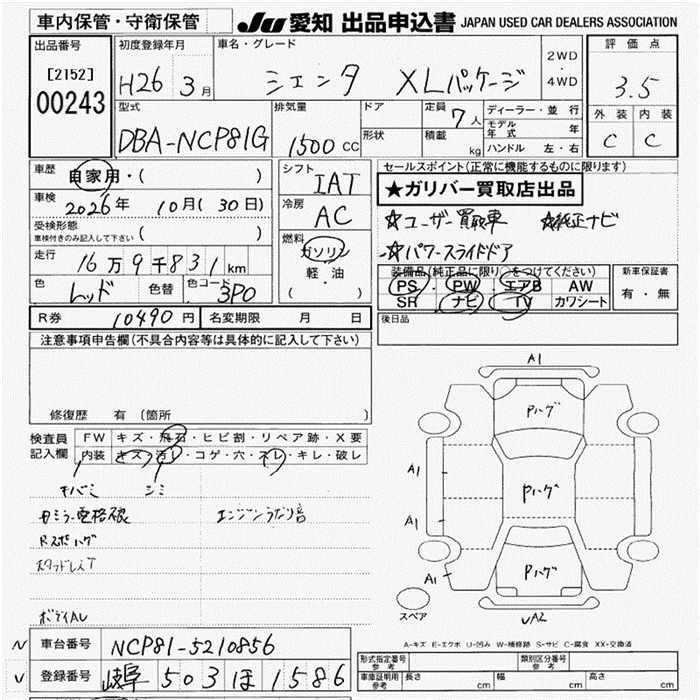 車内保管・守衛保管
JU 愛知 出品申込書 JAPAN USED CAR DEALERS ASSOCIATION
出品番号
[2152]
00243
初度登録年月
H26 3月
車名・グレード
シエンタ XLパッケージ
2WD
・
4WD
評価点
3.5
外装 内装
C C
型式
DBA-NCP81G
排気量
1500 CC
ドア
形状
定員 7人
積載 kg
ディーラー・並行
モデル年式 年
ハンドル 左・右
車歴 自家用・( )
車検 2026年 10月( 30日)
受検形態
車検付きのみ記入して下さい ( )
走行 16万9千831km
色 レッド 色替 色コード 3P0
シフト
IAT
冷房
AC
燃料
ガソリン
軽・油
( )
セールスポイント(正常に機能するものに限ります)
★ガリバー買取店出品
☆ユーザー買取車 ☆純正ナビ
☆パワースライドドア
装備品(純正品に限り○をつけてください)
PS・PW エアB AW
SR ナビ TV カワシート
新車保証書
有・無
後日品
R券 10490円 名変期限 月 日
注意事項申告欄(不具合内容等は具体的に記入して下さい)
修復歴 有 (箇所
検査員
記入欄
FW キズ・飛石・ヒビ割・リペア跡・X要
内装 キズ・汚レ・コゲ・穴・スレ・キレ・破レ
キバミ シミ
エンジンうなり音
ボデイAU
A1
Pハゲ
A1
Pハゲ
A1
A1
Pハゲ
A2
スペア
A-キズ E-エクボ U-凹み W-補修跡 S-サビ C-腐食 XX-交換済
車台番号 NCP81-5210856
登録番号 岐阜 503 ほ 1586
形式指定番号
参考
類別区分番号
参考
車庫証明用
参考
長さ cm 幅 cm 高さ cm